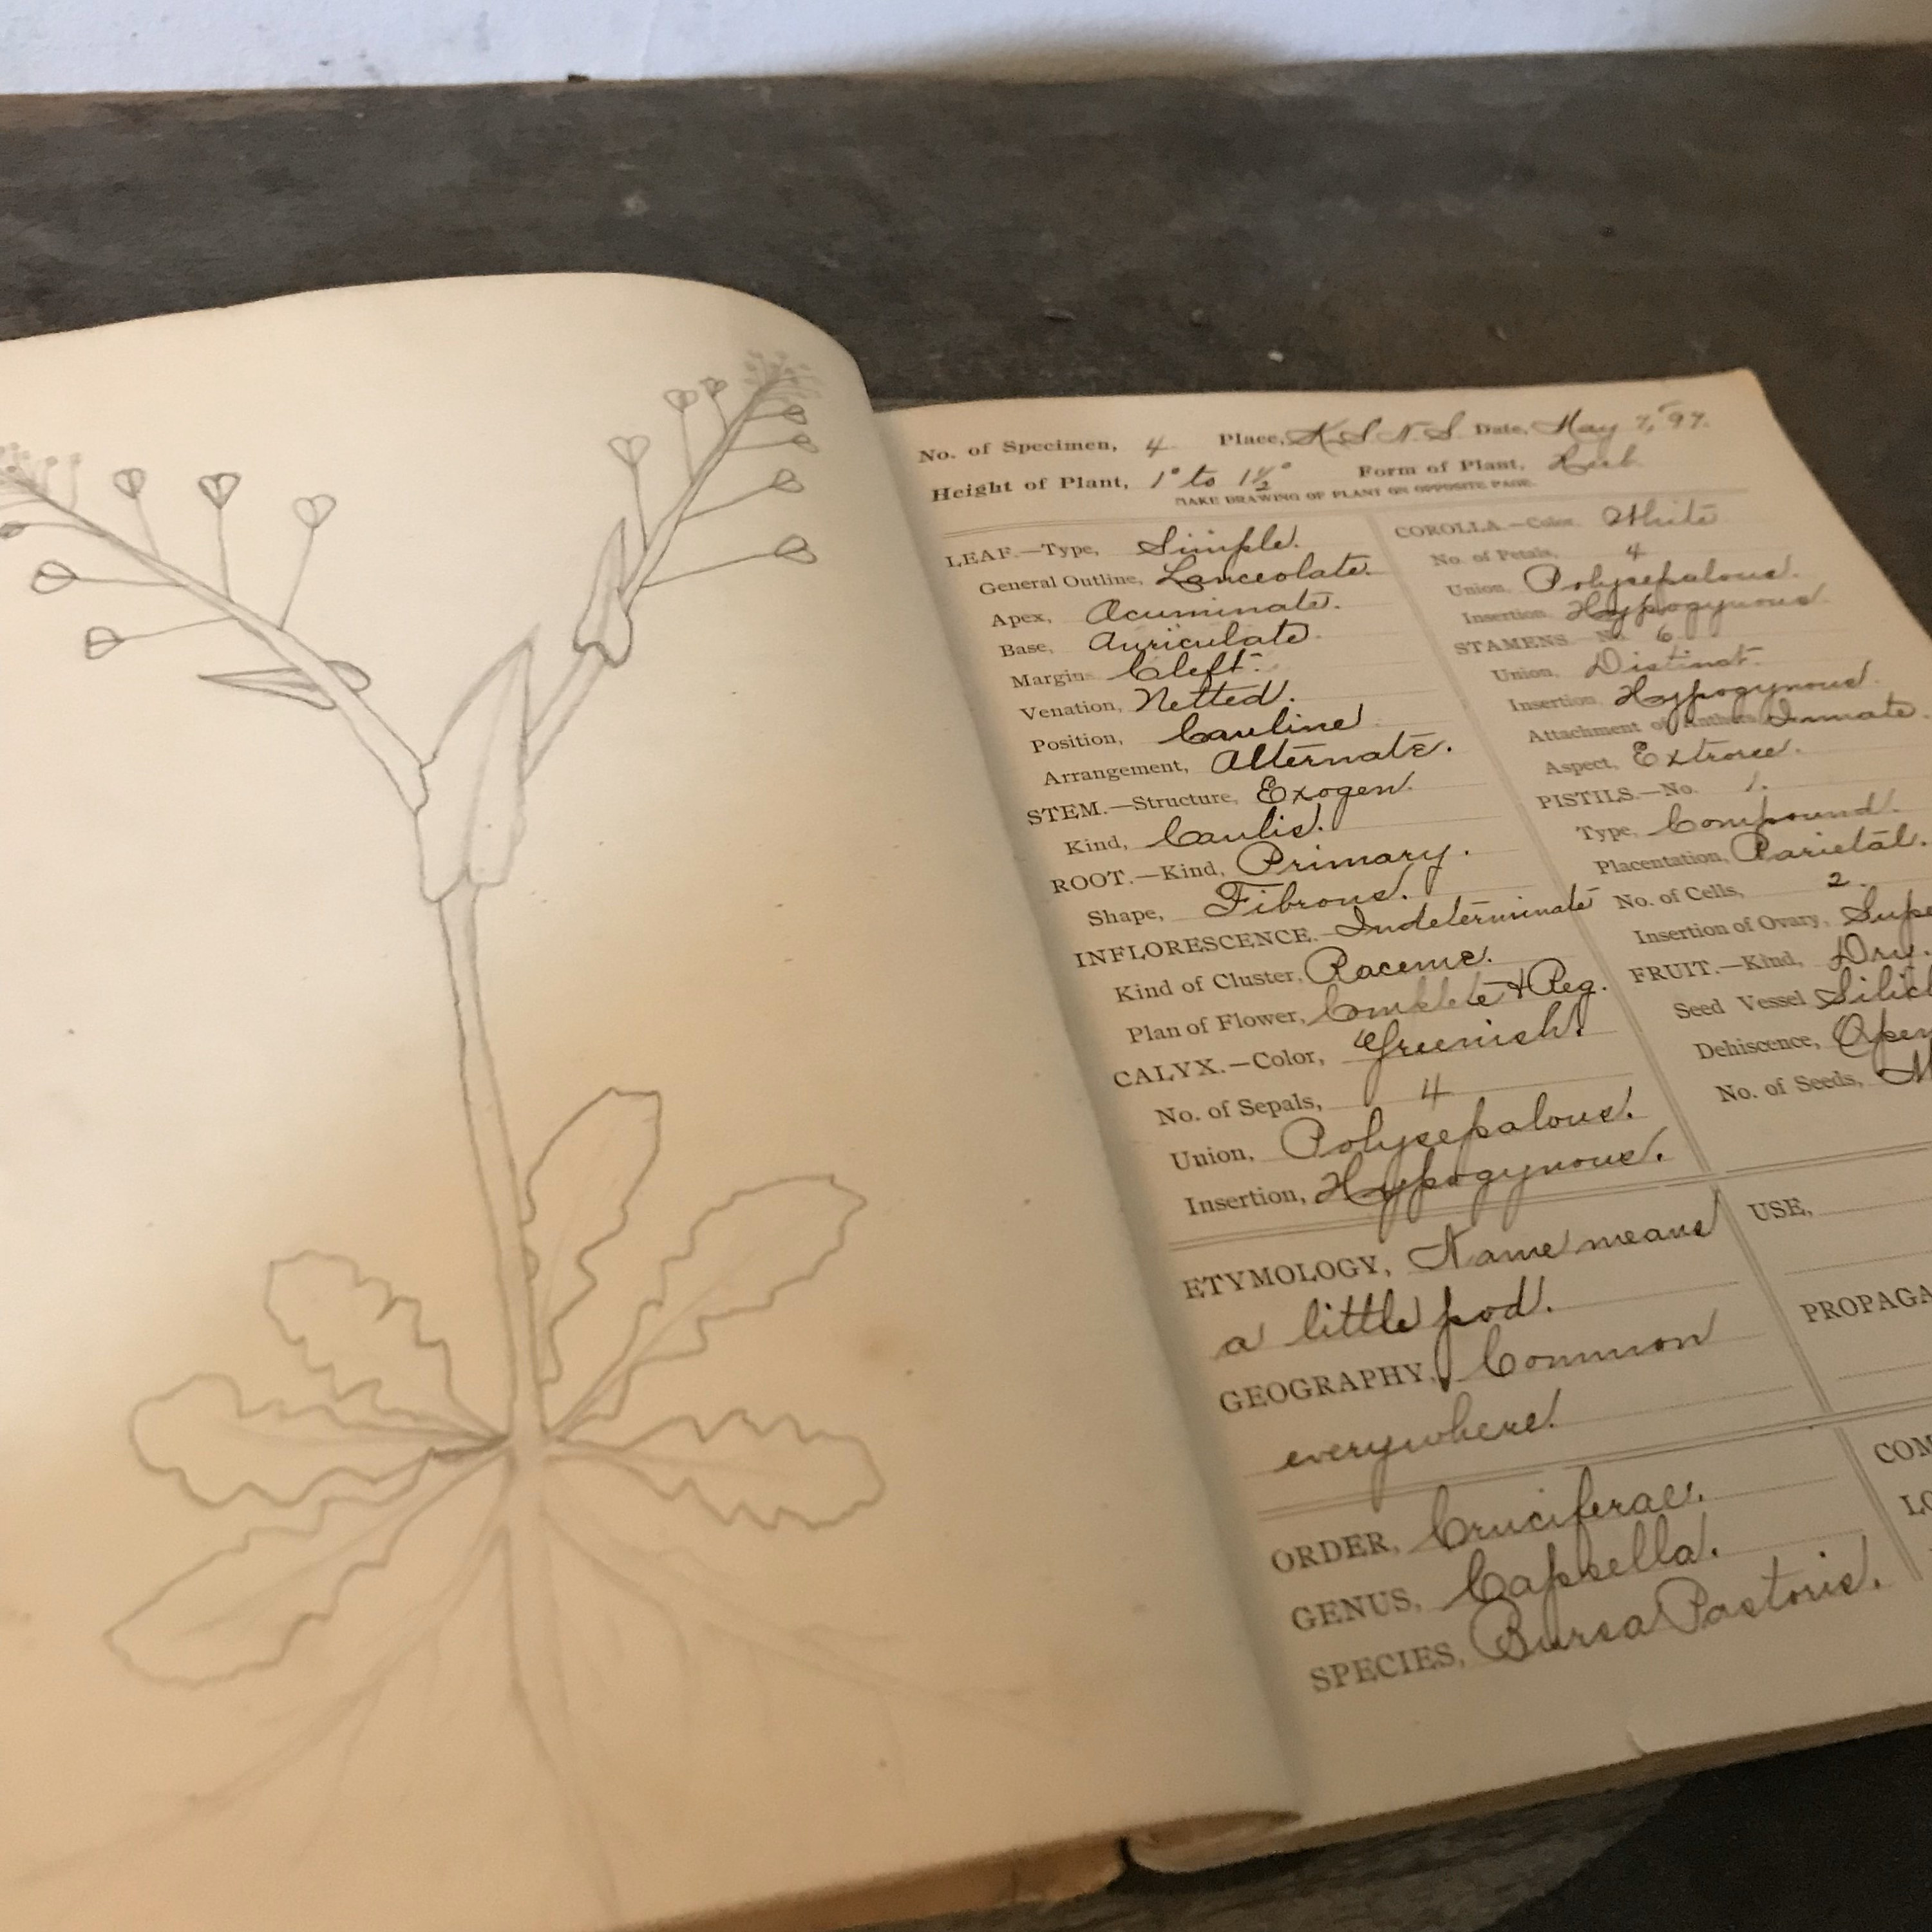 No. of Specimen, 4 Place, K.S.N.S. Date, May 7, '97.
Height of Plant, 1° to 1½° Form of Plant, Herb
MAKE DRAWING OF PLANT ON OPPOSITE PAGE.
LEAF.—Type, Simple.
General Outline, Lanceolate.
Apex, Acuminate.
Base, Auriculate.
Margin Cleft.
Venation, Netted.
Position, Cauline
Arrangement, Alternate.
STEM.—Structure, Exogen.
Kind, Caulis.
ROOT.—Kind, Primary.
Shape, Fibrous.
INFLORESCENCE.—Indeterminate
Kind of Cluster, Raceme.
Plan of Flower, Complete & Reg.
CALYX.—Color, Greenish.
No. of Sepals, 4
Union, Polysepalous.
Insertion, Hypogynous.
COROLLA.—Color, White
No. of Petals, 4
Union, Polysepalous.
Insertion, Hypogynous.
STAMENS No. 6
Union, Distinct.
Insertion, Hypogynous.
Attachment of Anthers Innate.
Aspect, Extrorse.
PISTILS.—No. 1.
Type, Compound.
Placentation, Parietal.
No. of Cells, 2.
Insertion of Ovary, Supe
FRUIT.—Kind, Dry.
Seed Vessel Silicl
Dehiscence, Open
No. of Seeds, M
ETYMOLOGY, Name means
a little pod.
GEOGRAPHY, Common
everywhere.
USE,
PROPAGA
ORDER, Cruciferae.
GENUS, Capsella.
SPECIES, Bursa Pastoris.
COM
LO